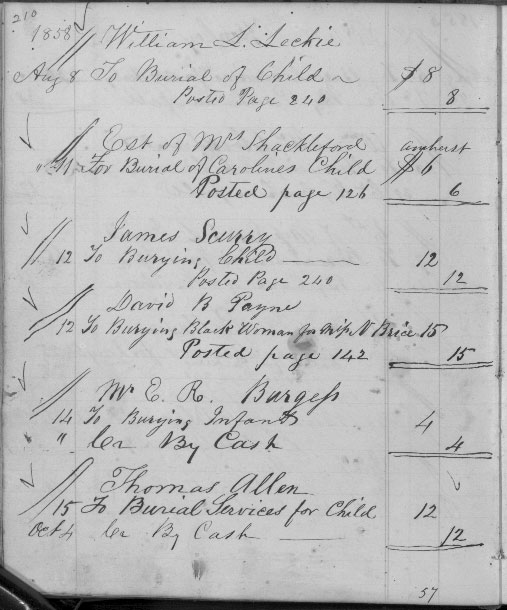 210
1858 William L. Leckie
Aug 8 To Burial of Child $8
Posted Page 240 8
Est of Mrs Shackleford amherst
" 11 For Burial of Carolines Child $6
Posted page 126 6
James Scurry
12 To Burying Child 12
Posted Page 240 12
David B Payne
12 To Burying Black Woman for Miss N Brice 15
Posted page 142 15
Mr E. R. Burgess
14 To Burying Infant 4
" Cr By Cash 4
Thomas Allen
15 To Burial Services for Child 12
Oct 4 Cr By Cash 12
57